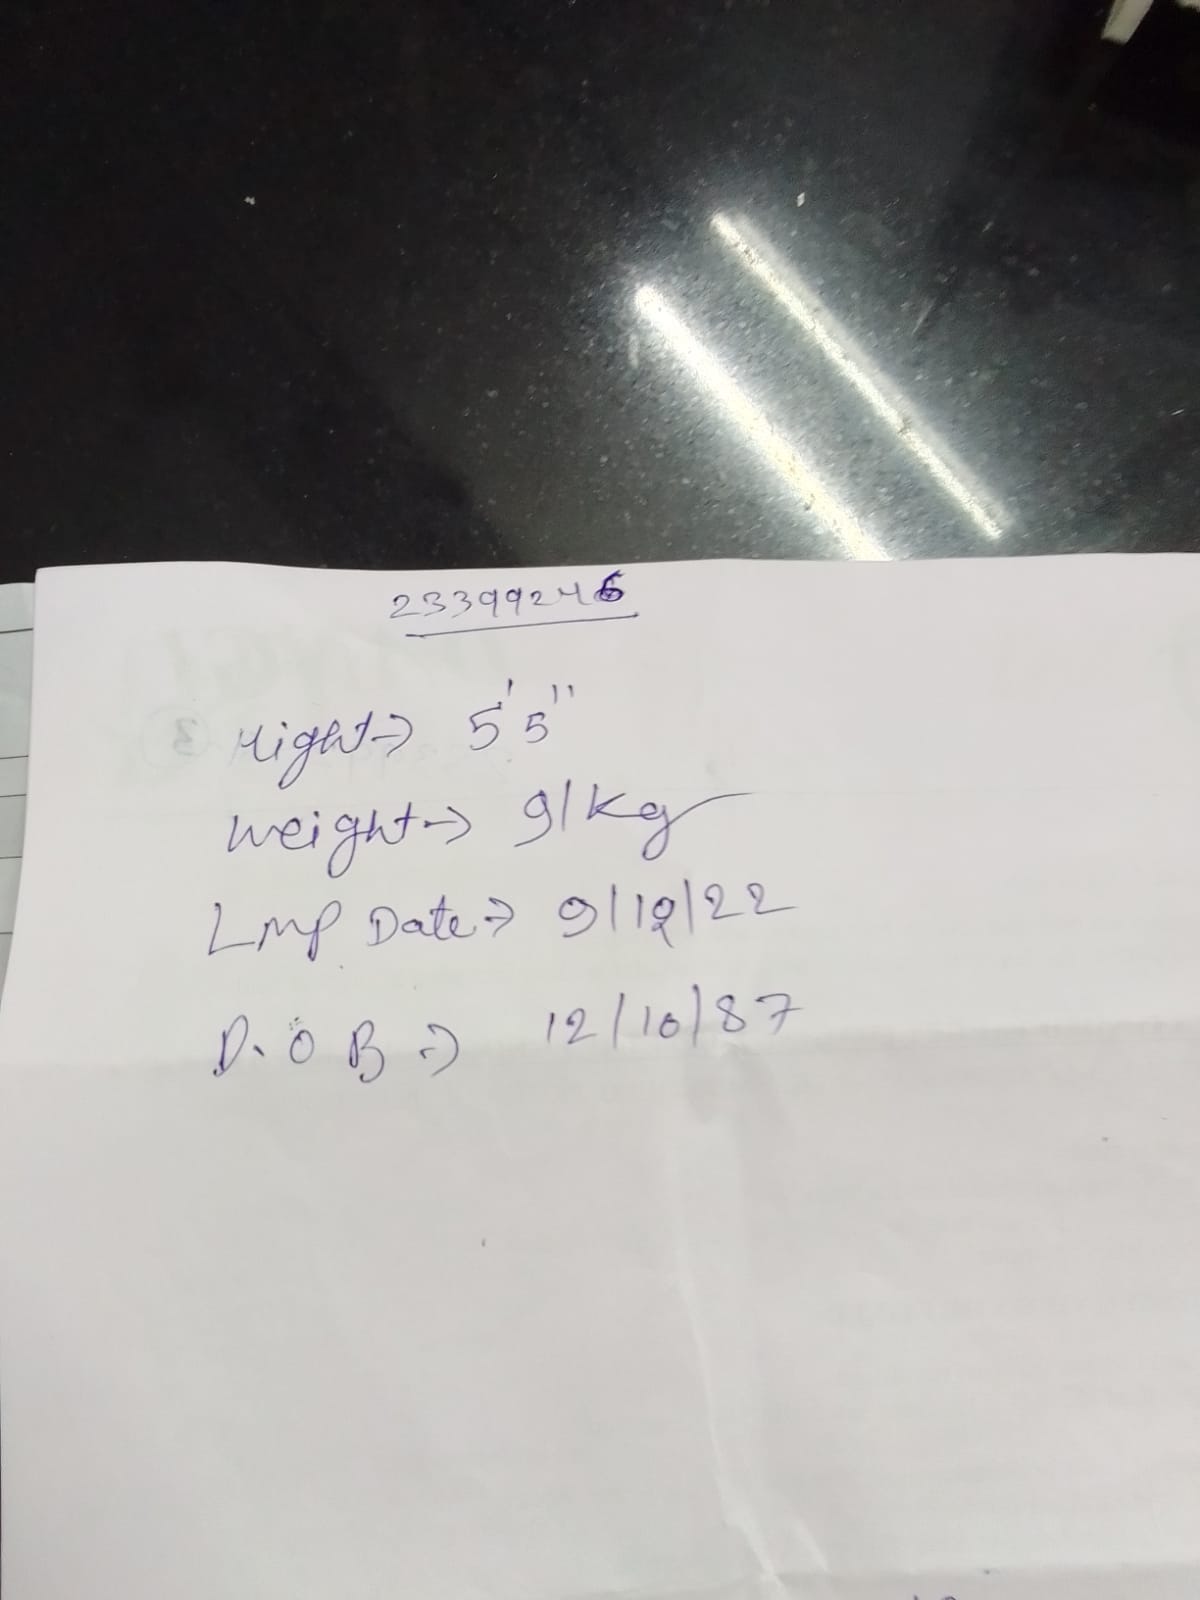 23399246
Hight → 5'5"
Weight → 91kg
LMP Date → 9/12/22
D.O B → 12/10/87